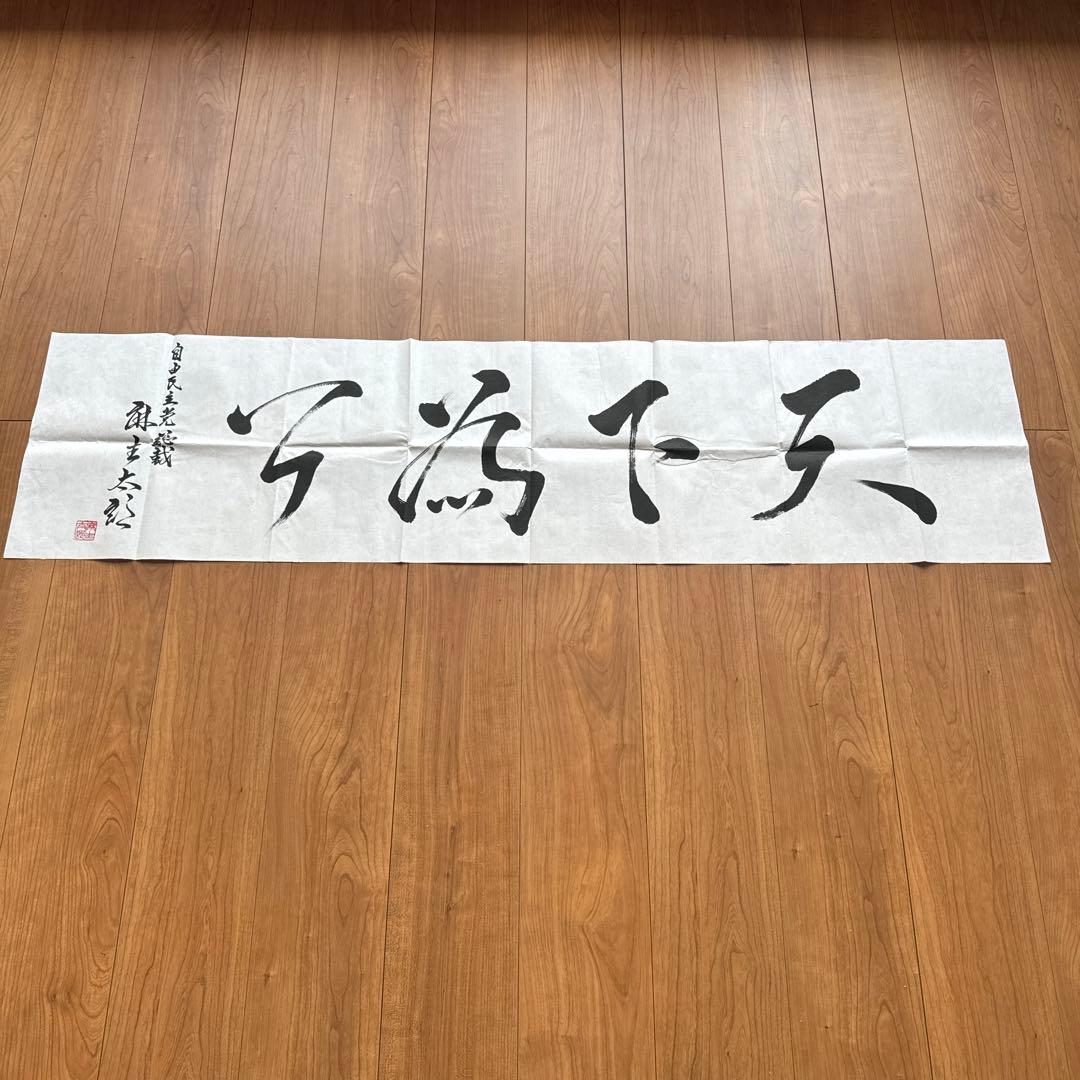 天下為公
自由民主党総裁
麻生太郎